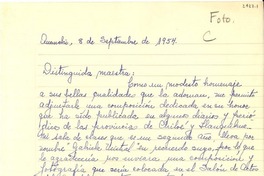 Foto.
C
8 de Septiembre de 1954.
Distinguida maestra:
Como un modesto homenaje
a sus bellas cualidades que la adornan, me permito
adjuntarle una composición dedicada en su honor
que ha sido publicada en algunos diarios y perió
dicos de las provincias de Chiloé y Llanquihue.
sala de clases que es un segundo año lleva por
nombre "Gabriela Mistral" su recuerdo sugo, por lo que
le agradecería nos enviara una composición y
fotografía que sería colocada en el Salón de Actos